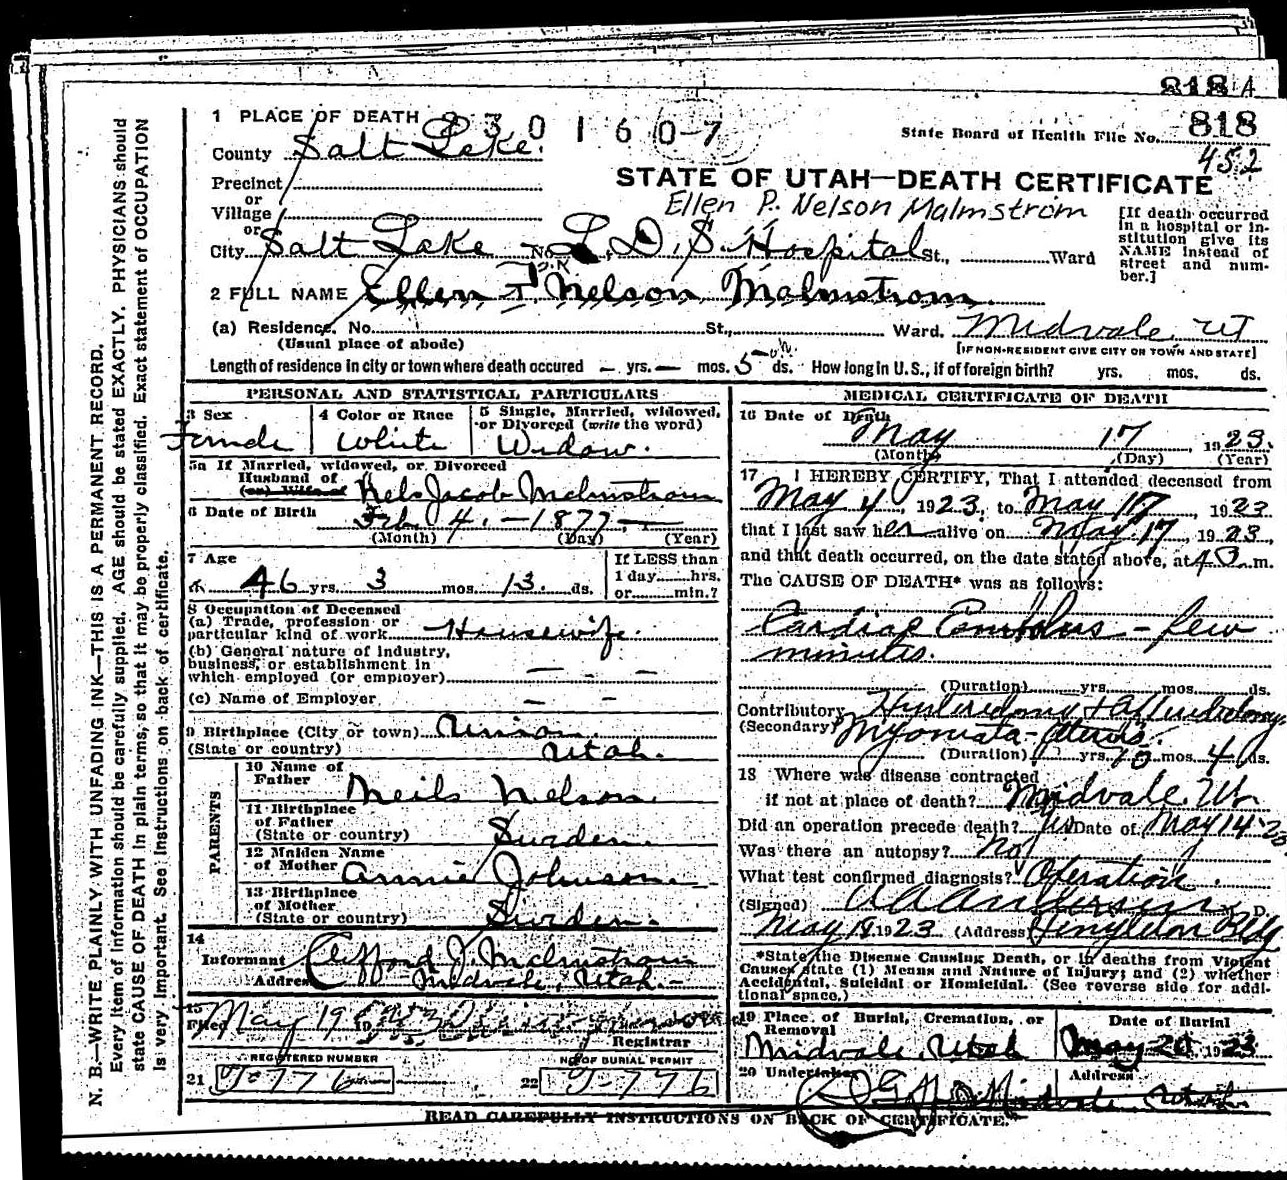 818 A
1 PLACE OF DEATH 2 3 0 1 6 0-7
State Board of Health File No. 818
452
County Salt Lake.
Precinct
or
Village
or
City Salt Lake No. L. D. S. Hospital St., Ward
STATE OF UTAH—DEATH CERTIFICATE
Ellen P. Nelson Malmstrom
[If death occurred
in a hospital or in-
stitution give its
NAME instead of
street and num-
ber.]
2 FULL NAME Ellen Nelson Malmstrom.
(a) Residence. No. St., Ward. Midvale, UT
(Usual place of abode)
[IF NON-RESIDENT GIVE CITY OR TOWN AND STATE]
Length of residence in city or town where death occured — yrs. — mos. 5 ds. How long in U. S., if of foreign birth? yrs. mos. ds.
PERSONAL AND STATISTICAL PARTICULARS
3 Sex
Female
4 Color or Race
White
5 Single, Married, widowed,
or Divorced (write the word)
Widow.
5a If Married, widowed, or Divorced
Husband of
(or) Wife of Nels Jacob Malmstrom
6 Date of Birth Feb. 4. — 1877 —
(Month) (Day) (Year)
7 Age
46 yrs. 3 mos. 13. ds.
If LESS than
1 day......hrs.
or......min.?
8 Occupation of Deceased
(a) Trade, profession or
particular kind of work Housewife.
(b) General nature of industry,
business, or establishment in
which employed (or employer) — —
(c) Name of Employer — —
9 Birthplace (City or town) Union.
(State or country) Utah.
PARENTS
10 Name of
Father Neils Nelson.
11 Birthplace
of Father
(State or country) Sweden.
12 Maiden Name
of Mother Annie Johnson.
13 Birthplace
of Mother
(State or country) Sweden.
14
Informant Clifford J. Malmstrom
Address Midvale, Utah.
15
Filed May 19
Registrar
REGISTERED NUMBER
21 T-776
NO. OF BURIAL PERMIT
22 T-776
MEDICAL CERTIFICATE OF DEATH
16 Date of Death
May 17, 1923.
(Month) (Day) (Year)
17 I HEREBY CERTIFY, That I attended deceased from
May 4, 1923, to May 17, 1923
that I last saw her alive on May 17, 1923,
and that death occurred, on the date stated above, at m.
The CAUSE OF DEATH* was as follows:
Cardiac Embolus - few
minutes.
(Duration) yrs. mos. ds.
Contributory Hysterectomy
(Secondary) Myomata-Uterus.
(Duration) yrs. mos. ds.
18 Where was disease contracted
if not at place of death? Midvale, Ut.
Did an operation precede death? yes Date of May 14 23
Was there an autopsy? No
What test confirmed diagnosis? Operation.
(Signed) A A Anderson M. D.
May 18 1923 (Address) Templeton Bldg
*State the Disease Causing Death, or in deaths from Violent
Causes, state (1) Means and Nature of Injury; and (2) whether
Accidental, Suicidal or Homicidal. (See reverse side for addi-
tional space.)
19 Place of Burial, Cremation, or
Removal
Midvale, Utah
Date of Burial
May 20 1923
20 Undertaker
Goff
Address
Midvale, Utah
READ CAREFULLY INSTRUCTIONS ON BACK OF CERTIFICATE.
N. B.—WRITE PLAINLY WITH UNFADING INK—THIS IS A PERMANENT RECORD.
Every item of information should be carefully supplied. AGE should be stated EXACTLY. PHYSICIANS should
state CAUSE OF DEATH in plain terms, so that it may be properly classified. Exact statement of OCCUPATION
is very important. See instructions on back of certificate.